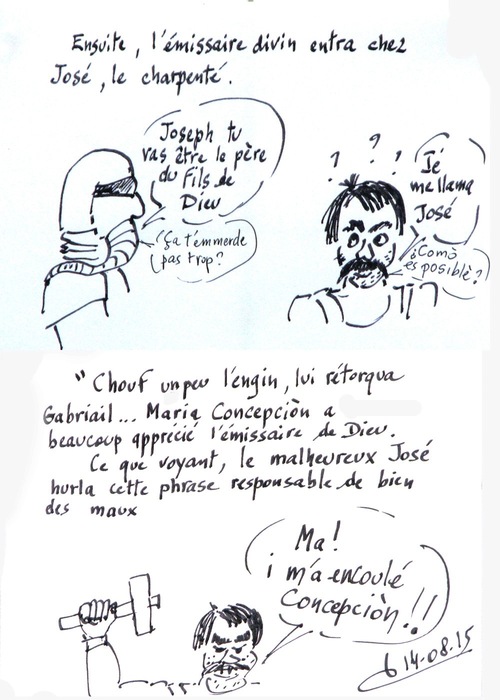 Ensuite, l'émissaire divin entra chez
José, le charpenté.
Joseph tu
vas être le père
du Fils de
Dieu
Ça t'emmerde
pas trop?
? ? ?
Jé
me llama
José
¿Comò
es posiblè?
" Chouf un peu l'engin, lui rétorqua
Gabriail... Maria Concepciòn a
beaucoup apprécié l'émissaire de Dieu.
Ce que voyant, le malheureux José
hurla cette phrase responsable de bien
des maux
Ma!
i m'a enculé
Concepciòn!!
14-08-15